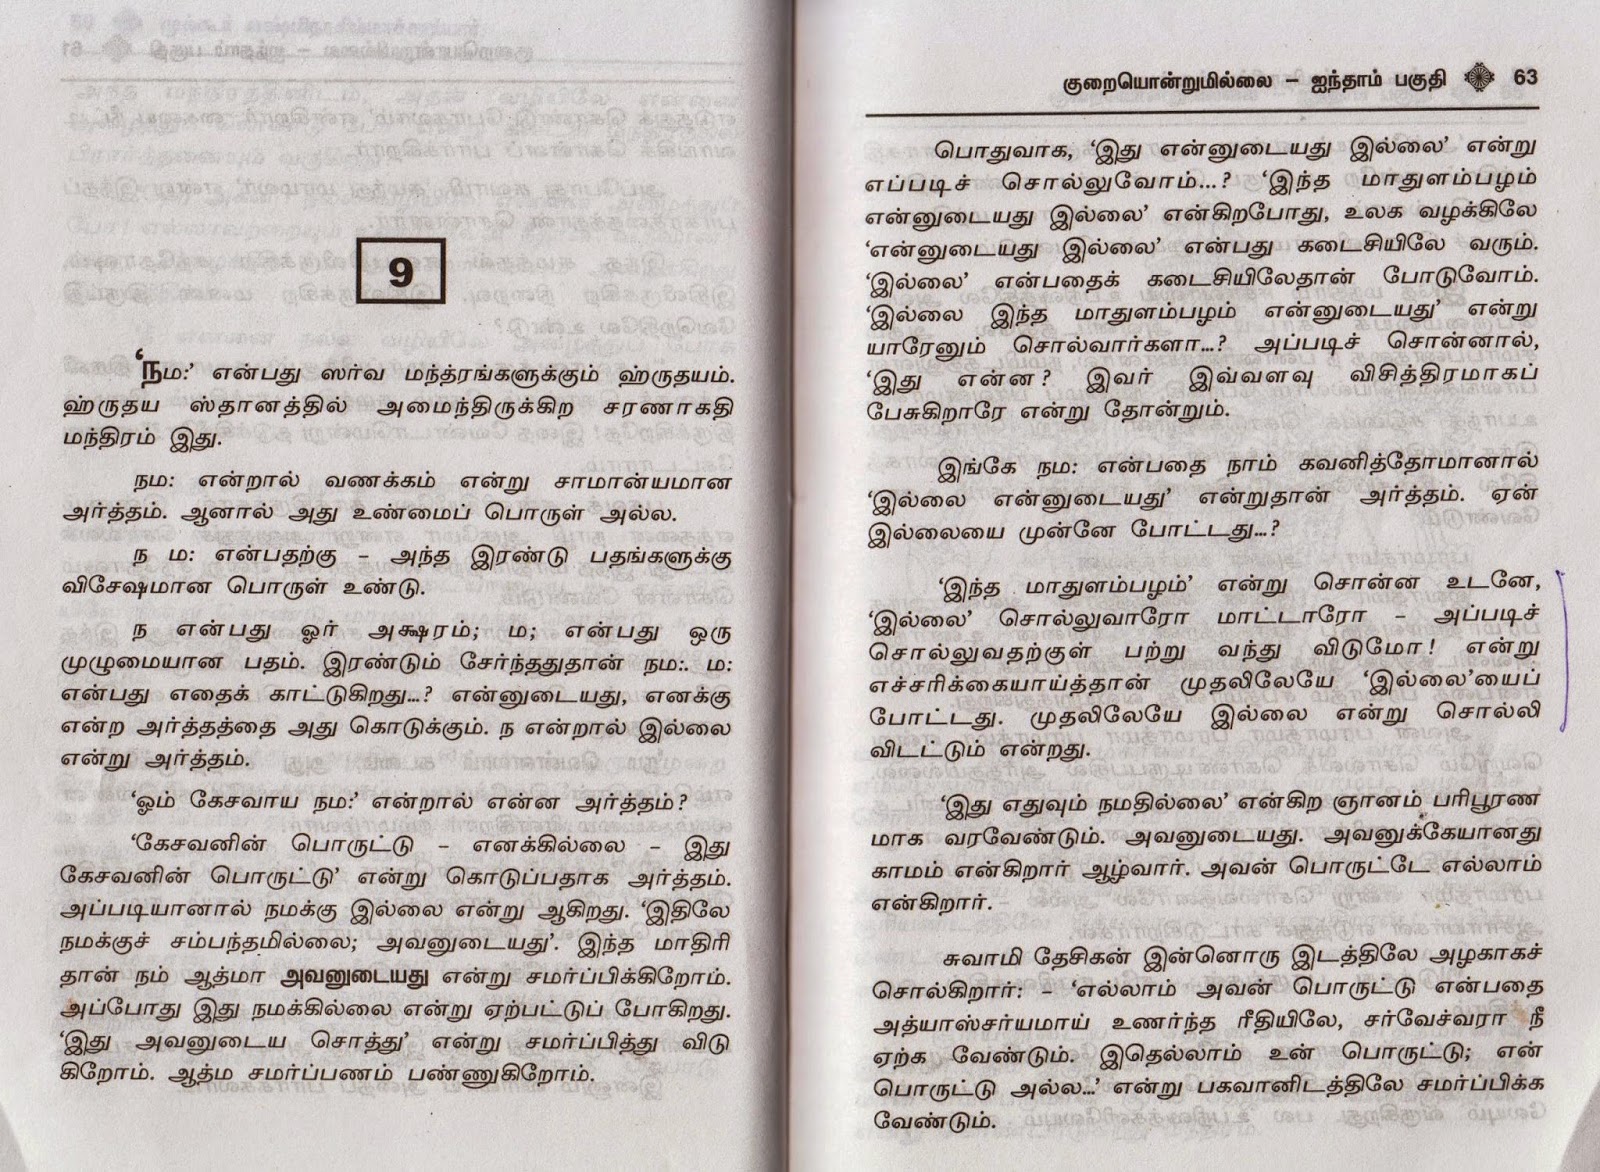 9
‘நம:’ என்பது ஸர்வ மந்த்ரங்களுக்கும் ஹ்ருதயம்.
ஹ்ருதய ஸ்தானத்தில் அமைந்திருக்கிற சரணாகதி
மந்திரம் இது.
நம: என்றால் வணக்கம் என்று சாமான்யமான
அர்த்தம். ஆனால் அது உண்மைப் பொருள் அல்ல.
ந ம: என்பதற்கு – அந்த இரண்டு பதங்களுக்கு
விசேஷமான பொருள் உண்டு.
ந என்பது ஓர் அக்ஷரம்; ம; என்பது ஒரு
முழுமையான பதம். இரண்டும் சேர்ந்ததுதான் நம:. ம:
என்பது எதைக் காட்டுகிறது...? என்னுடையது, எனக்கு
என்ற அர்த்தத்தை அது கொடுக்கும். ந என்றால் இல்லை
என்று அர்த்தம்.
‘ஓம் கேசவாய நம:’ என்றால் என்ன அர்த்தம்?
‘கேசவனின் பொருட்டு – எனக்கில்லை – இது
கேசவனின் பொருட்டு’ என்று கொடுப்பதாக அர்த்தம்.
அப்படியானால் நமக்கு இல்லை என்று ஆகிறது. ‘இதிலே
நமக்குச் சம்பந்தமில்லை; அவனுடையது’. இந்த மாதிரி
தான் நம் ஆத்மா அவனுடையது என்று சமர்ப்பிக்கிறோம்.
அப்போது இது நமக்கில்லை என்று ஏற்பட்டுப் போகிறது.
‘இது அவனுடைய சொத்து’ என்று சமர்ப்பித்து விடு
கிறோம். ஆத்ம சமர்ப்பணம் பண்ணுகிறோம்.
குறையொன்றுமில்லை – ஐந்தாம் பகுதி 63
பொதுவாக, ‘இது என்னுடையது இல்லை’ என்று
எப்படிச் சொல்லுவோம்...? ‘இந்த மாதுளம்பழம்
என்னுடையது இல்லை’ என்கிறபோது, உலக வழக்கிலே
‘என்னுடையது இல்லை’ என்பது கடைசியிலே வரும்.
‘இல்லை’ என்பதைக் கடைசியிலேதான் போடுவோம்.
‘இல்லை இந்த மாதுளம்பழம் என்னுடையது’ என்று
யாரேனும் சொல்வார்களா...? அப்படிச் சொன்னால்,
‘இது என்ன? இவர் இவ்வளவு விசித்திரமாகப்
பேசுகிறாரே என்று தோன்றும்.
இங்கே நம: என்பதை நாம் கவனித்தோமானால்
‘இல்லை என்னுடையது’ என்றுதான் அர்த்தம். ஏன்
இல்லையை முன்னே போட்டது...?
‘இந்த மாதுளம்பழம்’ என்று சொன்ன உடனே,
‘இல்லை’ சொல்லுவாரோ மாட்டாரோ – அப்படிச்
சொல்லுவதற்குள் பற்று வந்து விடுமோ! என்று
எச்சரிக்கையாய்த்தான் முதலிலேயே ‘இல்லை’யைப்
போட்டது. முதலிலேயே இல்லை என்று சொல்லி
விடட்டும் என்றது.
‘இது எதுவும் நமதில்லை’ என்கிற ஞானம் பரிபூரண
மாக வரவேண்டும். அவனுடையது. அவனுக்கேயானது
காமம் என்கிறார் ஆழ்வார். அவன் பொருட்டே எல்லாம்
என்கிறார்.
சுவாமி தேசிகன் இன்னொரு இடத்திலே அழகாகச்
சொல்கிறார்: – ‘எல்லாம் அவன் பொருட்டு என்பதை
அத்யாஸ்சர்யமாய் உணர்ந்த ரீதியிலே, சர்வேச்வரா நீ
ஏற்க வேண்டும். இதெல்லாம் உன் பொருட்டு; என்
பொருட்டு அல்ல...’ என்று பகவானிடத்திலே சமர்ப்பிக்க
வேண்டும்.